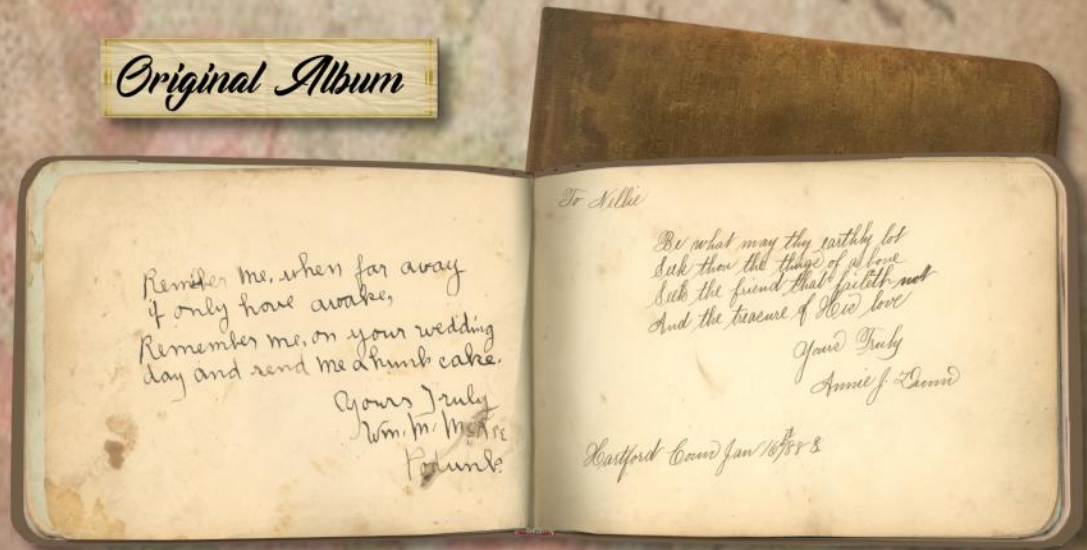 Original Album
Remember me, when far away
if only have awake,
Remember me, on your wedding
day and send me a hunk cake.
Yours Truly
Wm. M.
Podunk.
To Nellie
Be what may thy earthly lot
Seek thou the things of above
Seek the friend that faileth not
And the treasure of His love
Yours Truly
Annie J.
Hartford Conn Jan 16th